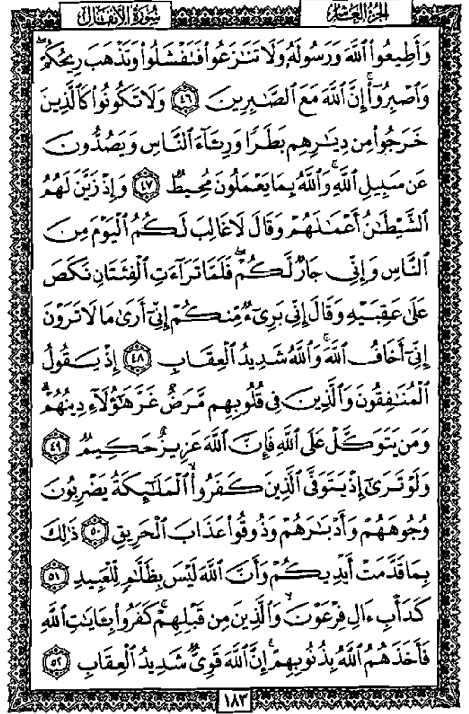 سُورَةُ الأَنفَالِ
الجُزْءُ العَاشِرُ
وَأَطِيعُوا۟ ٱللَّهَ وَرَسُولَهُۥ وَلَا تَنَـٰزَعُوا۟ فَتَفْشَلُوا۟ وَتَذْهَبَ رِيحُكُمْ ۖ
وَٱصْبِرُوٓا۟ ۚ إِنَّ ٱللَّهَ مَعَ ٱلصَّـٰبِرِينَ ٤٦ وَلَا تَكُونُوا۟ كَٱلَّذِينَ
خَرَجُوا۟ مِن دِيَـٰرِهِم بَطَرًا وَرِئَآءَ ٱلنَّاسِ وَيَصُدُّونَ
عَن سَبِيلِ ٱللَّهِ ۚ وَٱللَّهُ بِمَا يَعْمَلُونَ مُحِيطٌ ٤٧ وَإِذْ زَيَّنَ لَهُمُ
ٱلشَّيْطَـٰنُ أَعْمَـٰلَهُمْ وَقَالَ لَا غَالِبَ لَكُمُ ٱلْيَوْمَ مِنَ
ٱلنَّاسِ وَإِنِّى جَارٌ لَّكُمْ ۖ فَلَمَّا تَرَآءَتِ ٱلْفِئَتَانِ نَكَصَ
عَلَىٰ عَقِبَيْهِ وَقَالَ إِنِّى بَرِىٓءٌ مِّنكُمْ إِنِّىٓ أَرَىٰ مَا لَا تَرَوْنَ
إِنِّىٓ أَخَافُ ٱللَّهَ ۚ وَٱللَّهُ شَدِيدُ ٱلْعِقَابِ ٤٨ إِذْ يَقُولُ
ٱلْمُنَـٰفِقُونَ وَٱلَّذِينَ فِى قُلُوبِهِم مَّرَضٌ غَرَّ هَـٰٓؤُلَآءِ دِينُهُمْ ۗ
وَمَن يَتَوَكَّلْ عَلَى ٱللَّهِ فَإِنَّ ٱللَّهَ عَزِيزٌ حَكِيمٌ ٤٩
وَلَوْ تَرَىٰٓ إِذْ يَتَوَفَّى ٱلَّذِينَ كَفَرُوا۟ ۙ ٱلْمَلَـٰٓئِكَةُ يَضْرِبُونَ
وُجُوهَهُمْ وَأَدْبَـٰرَهُمْ وَذُوقُوا۟ عَذَابَ ٱلْحَرِيقِ ٥٠ ذَٰلِكَ
بِمَا قَدَّمَتْ أَيْدِيكُمْ وَأَنَّ ٱللَّهَ لَيْسَ بِظَلَّـٰمٍ لِّلْعَبِيدِ ٥١
كَدَأْبِ ءَالِ فِرْعَوْنَ ۙ وَٱلَّذِينَ مِن قَبْلِهِمْ ۚ كَفَرُوا۟ بِـَٔايَـٰتِ ٱللَّهِ
فَأَخَذَهُمُ ٱللَّهُ بِذُنُوبِهِمْ ۗ إِنَّ ٱللَّهَ قَوِىٌّ شَدِيدُ ٱلْعِقَابِ ٥٢
١٨٣